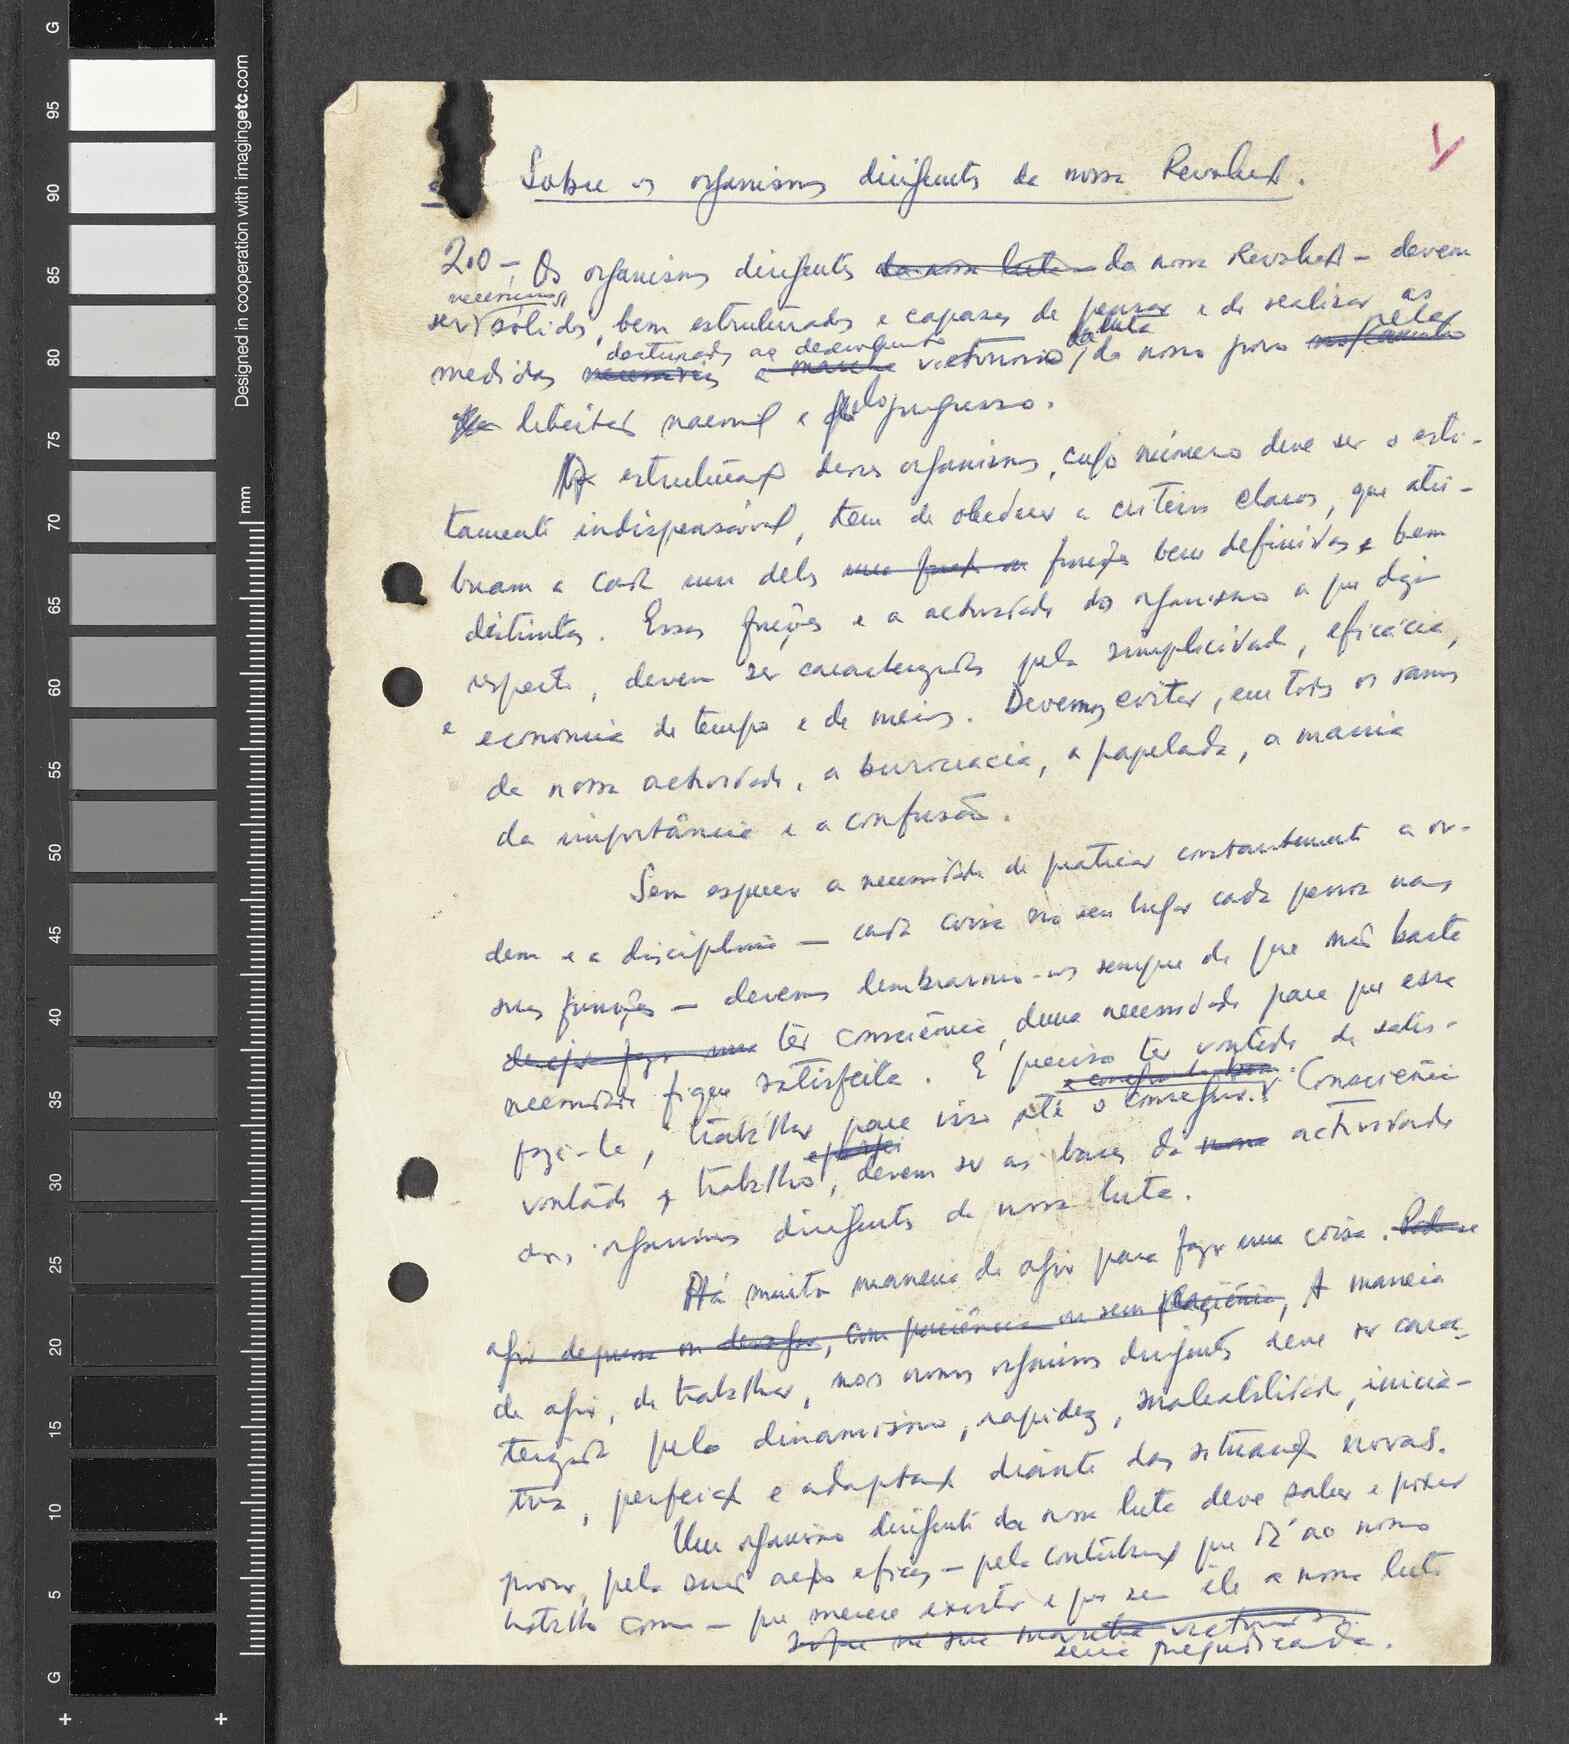 Designed in cooperation with imagingetc.com
mm
G 95 90 85 80 75 70 65 60 55 50 45 40 35 30 25 20 15 10 5 G
Sobre os organismos dirigentes da nossa Revolução.
2.0 - Os organismos dirigentes da nossa luta da nossa Revolução - devem
necessários
ser sólidos, bem estruturados e capazes de pensar e de realizar as
destinadas ao desenvolvimento da luta pela
medidas necessárias e marcha vitoriosa, do nosso povo
libertação nacional e pelo progresso.
A estruturação desses organismos, cujo número deve ser o estri-
tamente indispensável, tem de obedecer a critérios claros, que atri-
buam a cada um deles uma função ou funções bem definidas e bem
distintas. Essas funções e a actividade dos organismos a que digam
respeito, devem ser caracterizadas pela simplicidade, eficácia,
e economia de tempo e de meios. Devemos evitar, em todos os ramos
da nossa actividade, a burocracia, a papelada, a mania
da importância e a confusão.
Sem esquecer a necessidade de praticar constantemente a or-
dem e a disciplina - cada coisa no seu lugar cada pessoa nas
suas funções - devemos lembrarmo-nos sempre de que não basta
ter consciência duma necessidade para que essa
necessidade fique satisfeita. É preciso ter vontade de satis-
fazê-la, trabalhar para isso até o conseguir. Consciência
vontade e trabalho, devem ser as bases da nossa actividade
dos organismos dirigentes da nossa luta.
Há muita maneira de agir para fazer uma coisa. Pode-se
agir depressa ou devagar, com paciência ou sem paciência, A maneira
de agir, de trabalhar, nos nossos organismos dirigentes deve ser carac-
terizada pelo dinamismo, rapidez, maleabilidade, inicia-
tiva, perfeição e adaptação diante das situações novas.
Um organismo dirigente da nossa luta deve saber e poder
provar, pela sua acção eficaz - pela contribuição que dá ao nosso
trabalho comum - que merece existir e que sem ele a nossa luta
na sua marcha vitoriosa
seria prejudicada.